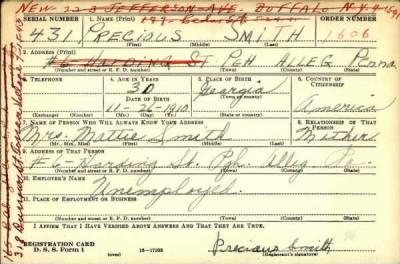 NEW- 223 JEFFERSON AVE. BUFFALO N.Y.
SERIAL NUMBER 1. NAME (Print) ORDER NUMBER
431 PRECIOUS SMITH 1606
(First) (Middle) (Last)
2. ADDRESS (Print)
#6 HARDING ST PGH ALLEG Penna
(Number and street or R. F. D. number) (Town) (County) (State)
3. TELEPHONE 4. AGE IN YEARS 5. PLACE OF BIRTH 6. COUNTRY OF CITIZENSHIP
30 Georgia
DATE OF BIRTH (Town or county)
11-26-1910 America
(Exchange) (Number) (Mo.) (Day) (Yr.) (State or country)
7. NAME OF PERSON WHO WILL ALWAYS KNOW YOUR ADDRESS 8. RELATIONSHIP OF THAT PERSON
Mrs. Mattie Smith Mother
(Mr., Mrs., Miss) (First) (Middle) (Last)
9. ADDRESS OF THAT PERSON
#6-Harding St. Pgh. Alleg
(Number and street or R. F. D. number) (Town) (County) (State)
10. EMPLOYER'S NAME
Unemployed.
11. PLACE OF EMPLOYMENT OR BUSINESS
(Number and street or R. F. D. number) (Town) (County) (State)
I AFFIRM THAT I HAVE VERIFIED ABOVE ANSWERS AND THAT THEY ARE TRUE.
REGISTRATION CARD
D. S. S. Form 1 (over) 16-17105 Precious Smith
(Registrant's signature)